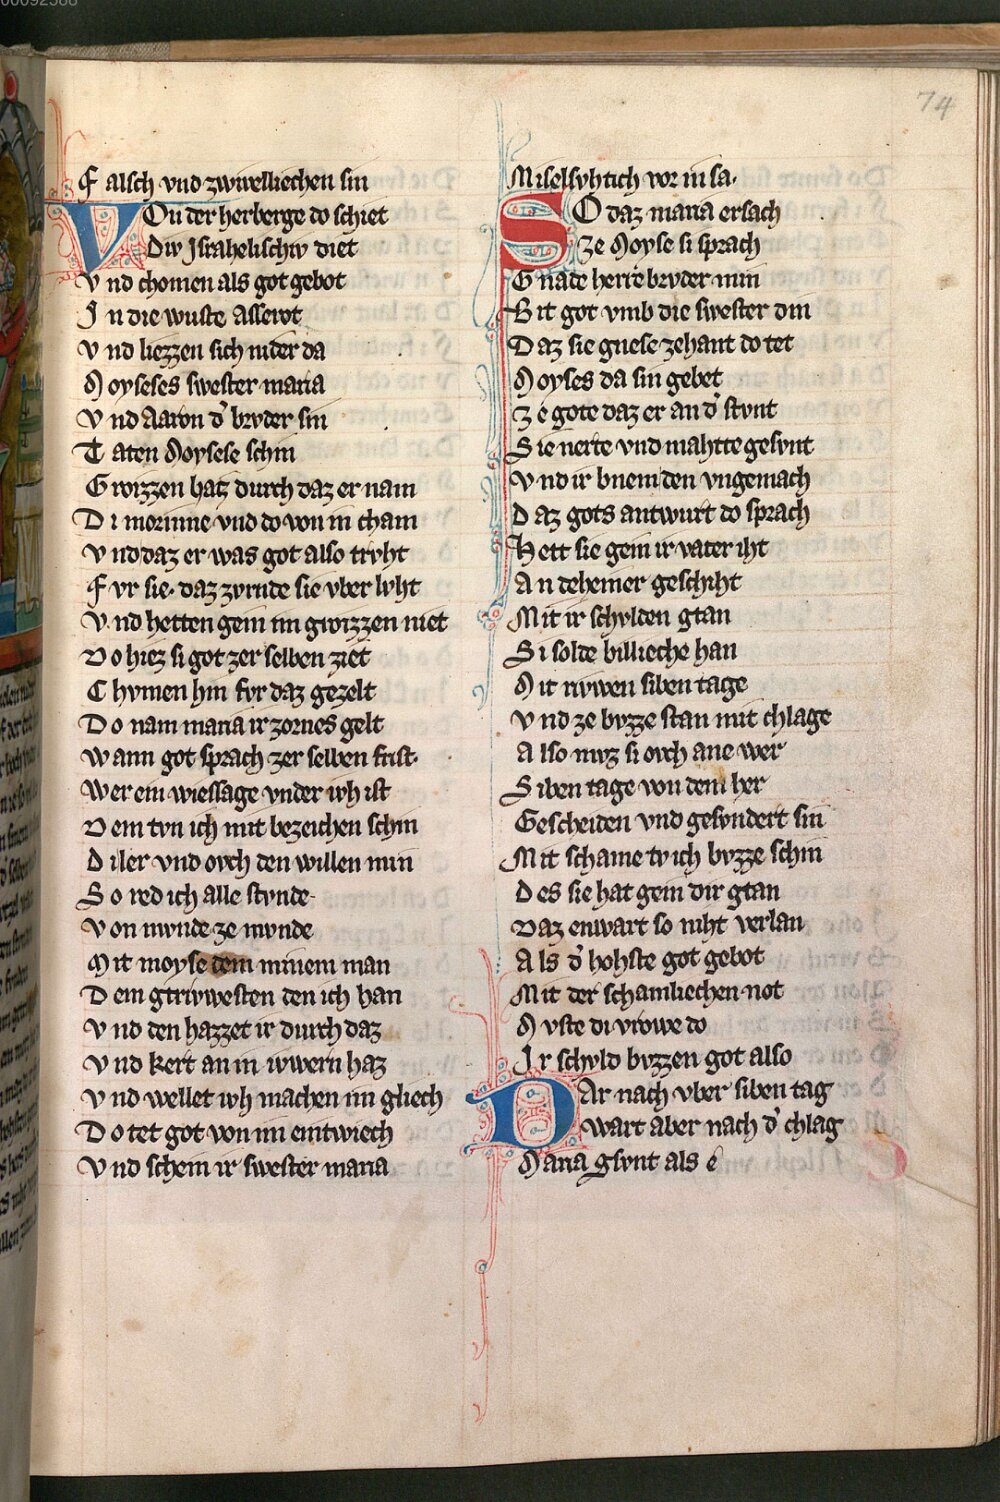 00092588
74
Falsch vnd zwiuelliechen sin
Von der herberge do schiet
Div Jsrahelischiv diet
Vnd chomen als got gebot
Jn die wuste Asserot
Vnd liezzen sich nider da
Moyseses swester maria
Vnd Aaron d' brvder sin
Taten Moysese schin
Groizzen haz durch daz er nam
Di morinne vnd do von in cham
Vnd daz er was got also trvht
Fvr sie· daz zvrnde sie vber lvht
Vnd hetten gein im groizzen niet
Do hiez si got zer selben ziet
Chvmen hin fvr daz gezelt
Do nam maria ir zornes gelt
Wann got sprach zer selben frist·
Wer ein wiessage vnder ivh ist
Dem tvn ich mit bezeichen schin
Diser vnd ovch den willen min
So red ich alle stvnde·
Von mvnde ze mvnde
Mit moyse dem minem man
Dem gtrivwesten den ich han
Vnd den hazzet ir durch daz
Vnd kert an in iwern haz
Vnd wellet ivh machen im gliech
Do tet got von im eintwiech
Vnd schein ir swester maria
Miselsvhtich vor in sa·
So daz maria ersach
Ze Moyse si sprach
Gnade herre brvder min
Bit got vmb die swester din
Daz sie gnese zehant do tet
Moyses da sin gebet
Ze gote daz er an d' stvnt
Sie nerte vnd mahtte gesvnt
Vnd ir bnem den vngemach
Daz gots antwurt do sprach
Hett sie gein ir vater iht
An deheiner geschiht
Mit ir schvlden gtan
Si solde billieche han
Mit riwen siben tage
Vnd ze bvzze stan mit chlage
Also mvz si ovch ane wer
Siben tage von dem her
Gescheiden vnd gesvndert sin
Mit schame tv ich bvzze schin
Des sie hat gein dir gtan
Daz enwart so niht verlan
Als d' hohste got gebot
Mit der schamliechen not
Mvste di vrowe do
Ir schvld bvzzen got also
Dar nach vber siben tag
Wart aber nach d' chlag
Maria gsvnt als e